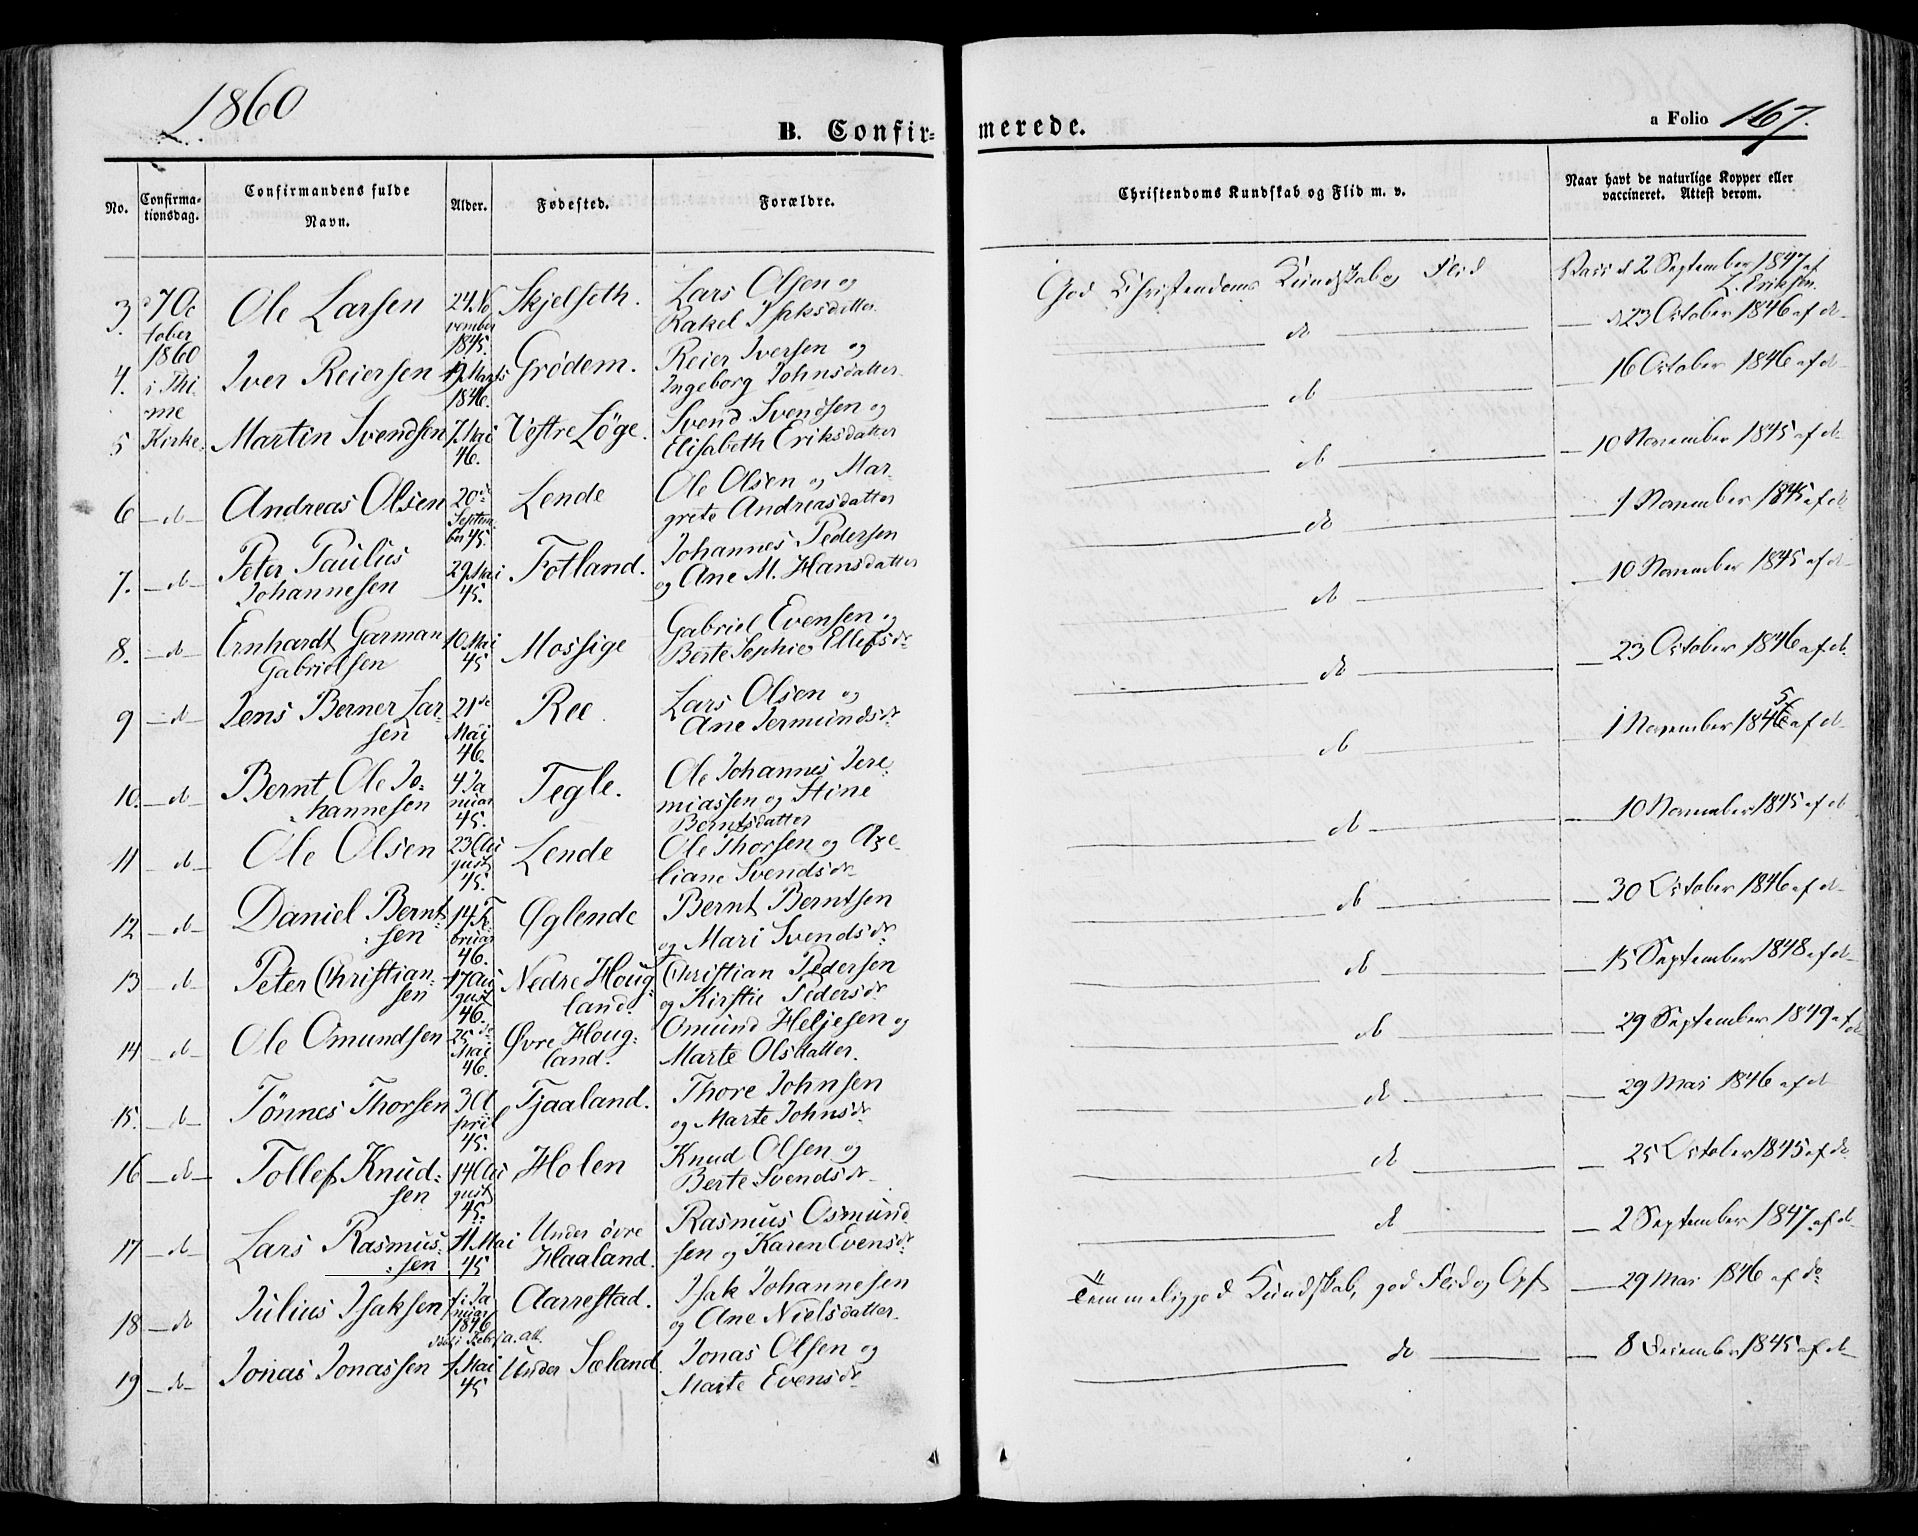 1860
B. Confir- merede.
a Folio 167.
No. Confirma-tionsdag. Confirmandens fulde Navn. Alder. Fødested. Forældre. Christendoms Kundskab og Flid m. v. Naar havt de naturlige Kopper eller vaccineret. Attest derom.
3. 7 Oc Ole Larsen 24. No Skjelseth. Lars Olsen og God Christendoms Kundskab og Flid Vacc. d. 2 September 1847 af
tober vember Rakel Isaksdatter L. Eriksen.
1860 1845.
4. i Thi- Iver Reiersen 19 Marts Grødem. Reier Iversen og do 23 October 1846 af do
me 1846. Ingeborg Johnsdatter
5 Kirke. Martin Svendsen 7. Mai Vestre Løge. Svend Svendsen og do 16 October 1846 af do
46. Elisabeth Eriksdatter
6 — do — Andreas Olsen 20de Lende Ole Olsen og Mar- do 10 November 1845 af do
Septem- grete Andreasdatter
ber 45.
7. — do — Peter Paulius 29 Mai Fotland. Johannes Pedersen do 1 November 1845 af do
Johannesen 45. og Ane M. Hansdatter
8. — do — Ernhardt Garman 10. Mai Mossige Gabriel Evensen og do 10 November 1845 af do
Gabrielsen 45 Berte Sophie Ellefsdr
9 — do — Jens Berner Lar- 21de Ree Lars Olsen og do 23 October 1846 af do
sen Mai Ane Jermundsdr
46.
10. — do — Bernt Ole Jo- 4 Ja Tegle. Ole Johannes Jere- do 1 November 1845 af do
hannesen nuar miassen og Stine
45. Berntsdatter
11 — do — Ole Olsen 23 Au Lende Ole Thorsen og Aze- do 10 November 1845 af do
gust liane Svendsdr
45.
12 — do — Daniel Bernt- 14. Fe- Øglende Bernt Berntsen do 30 October 1846 af do
sen bruar og Mari Svendsdr
46.
13 — do — Peter Christian- 17 Au Nedre Houg- Christian Pedersen do 15 September 1848 af do
sen gust land. og Kirstie Pedersdr
46.
14 — do — Ole Omundsen 25de Øvre Houg- Omund Heljesen og do 29 September 1849 af do
Mai land. Marte Olsdatter.
46.
15. — do — Tönnes Thorsen 30 A Tjaaland. Thore Johnsen do 29 Mai 1846 af do
pril og Marte Johnsdr
45.
16 — do — Tollef Knud- 14 Au Holen Knud Olsen og do 25 October 1845 af do
sen gust Berte Svendsdr
45.
17 — do — Lars Rasmus- 11 Mai Under övre Rasmus Osmund do 2 September 1847 af do
sen 45 Haaland. sen og Karen Evensdr
18 — do Julius Isaksen 1. Ja Aarrestad. Isak Johannesen Temmelig god Kundskab, god Flid og Opf. — 29 Mai 1846 af do
nuar og Ane Nielsdatter
1846
19 — do — Jonas Jonassen 1. Mai Under Sæland Jonas Olsen og do 8 December 1845 af do
45 Marte Evensdr